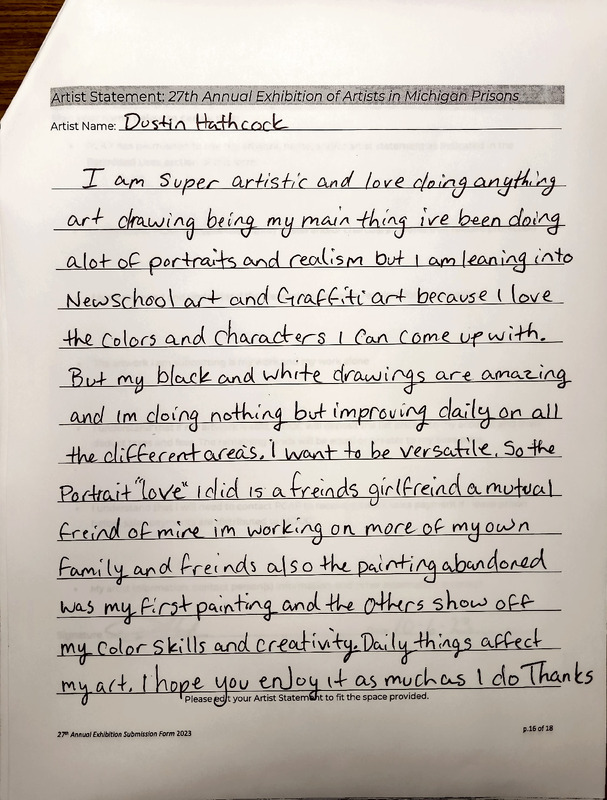 Artist Statement: 27th Annual Exhibition of Artists in Michigan Prisons
Artist Name: Dustin Hathcock
I am super artistic and love doing anything
art drawing being my main thing ive been doing
alot of portraits and realism but I am leaning into
Newschool art and Graffiti art because I love
the colors and characters I can come up with.
But my black and white drawings are amazing
and im doing nothing but improving daily on all
the different areas. I want to be versatile. So the
Portrait "love" I did is a freinds girlfreind a mutual
freind of mine im working on more of my own
family and freinds also the painting abandoned
was my first painting and the others show off
my color skills and creativity. Daily things affect
my art. I hope you enjoy it as much as I do Thanks
Please edit your Artist Statement to fit the space provided.
27th Annual Exhibition Submission Form 2023
p.16 of 18